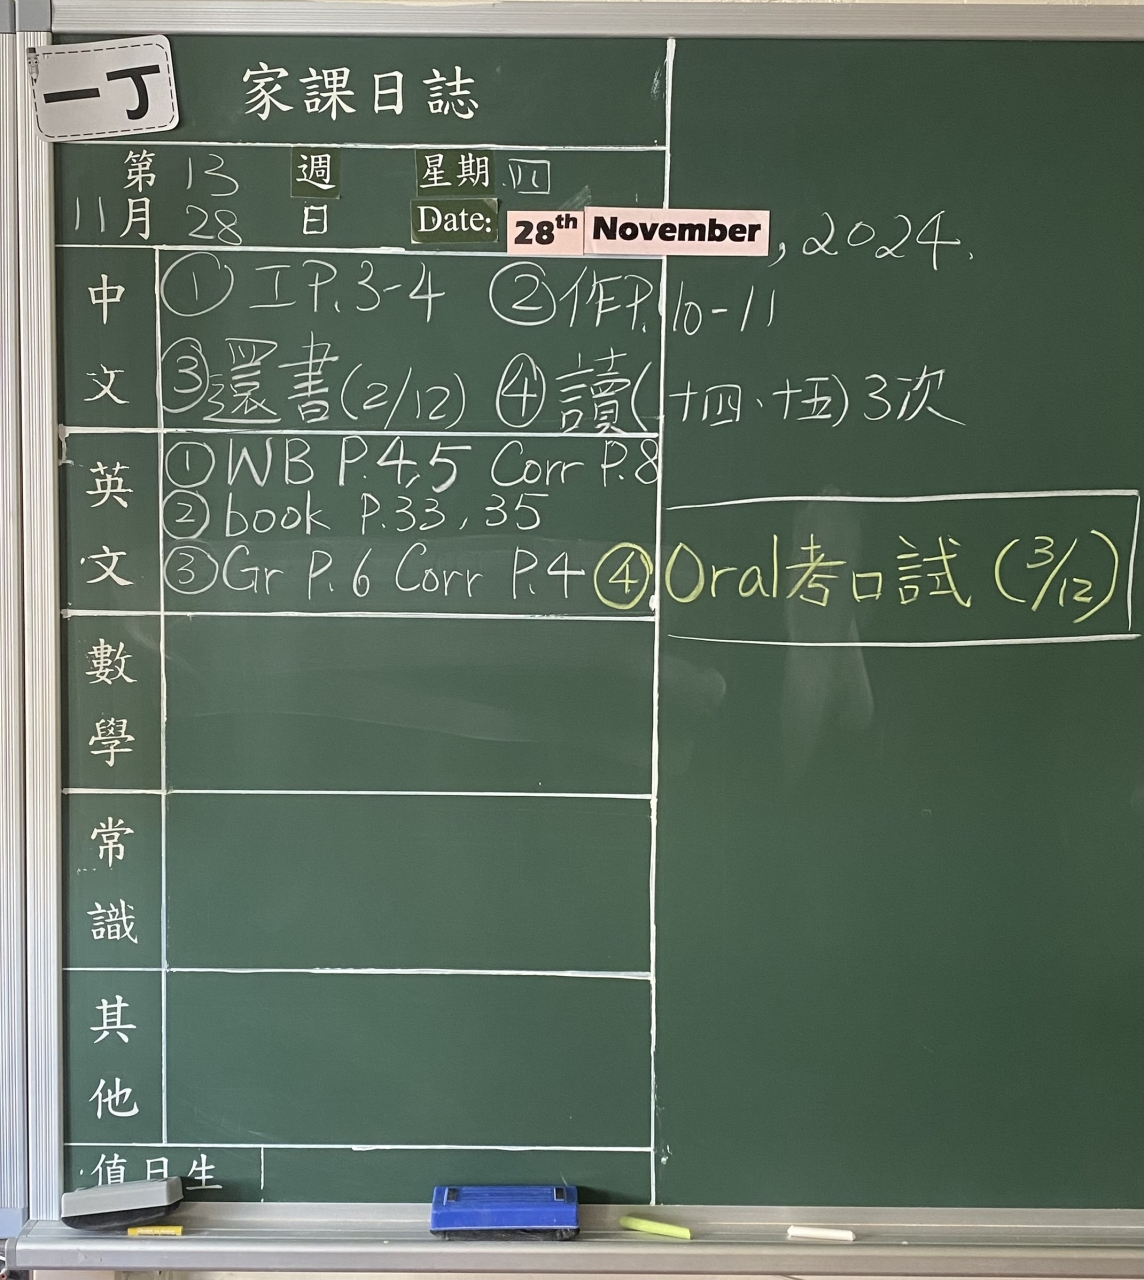 一丁
家課日誌
第 13 週 星期 四
11月 28 日 Date: 28th November, 2024.
中文 ① 工 P.3-4 ② 作 P.10-11
③ 還書(2/12) ④ 讀(十四、十五)3次
英文 ① WB P.4,5 Corr P.8
② book P.33, 35
③ Gr P.6 Corr P.4 ④ Oral考口試 (3/12)
數學
常識
其他
值日生